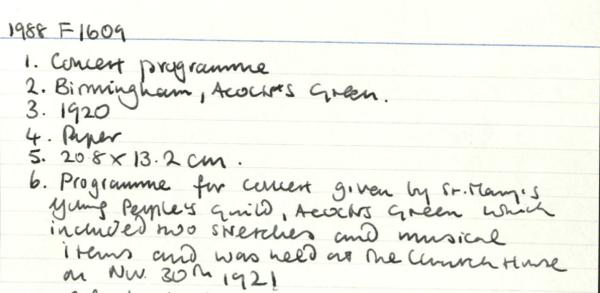 1988 F1609
1. Concert programme
2. Birmingham, Acocks Green.
3. 1920
4. Paper
5. 20.8 x 13.2 cm.
6. Programme for concert given by St. Mary's
Young People's Guild, Acocks Green which
included two sketches and musical
items and was held at the Church House
on Nov. 30th 1921